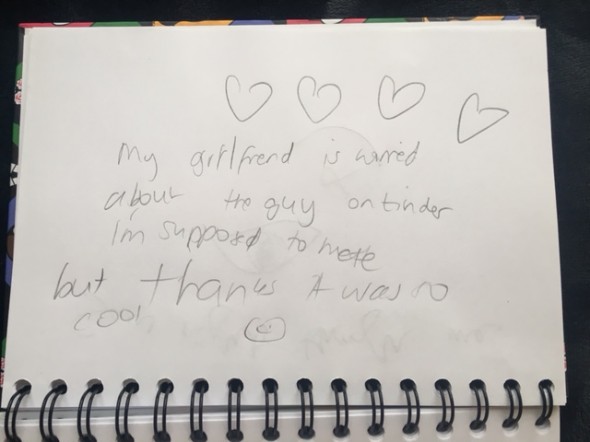 My girlfrend is warried
about the guy on tinder
I'm supposd to mete
but thanks it was so
cool